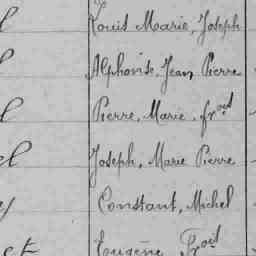 Louis Marie, Joseph
Alphonse, Jean Pierre
Pierre, Marie, frois
Joseph, Marie Pierre
Constant, Michel
Eugène, Frois